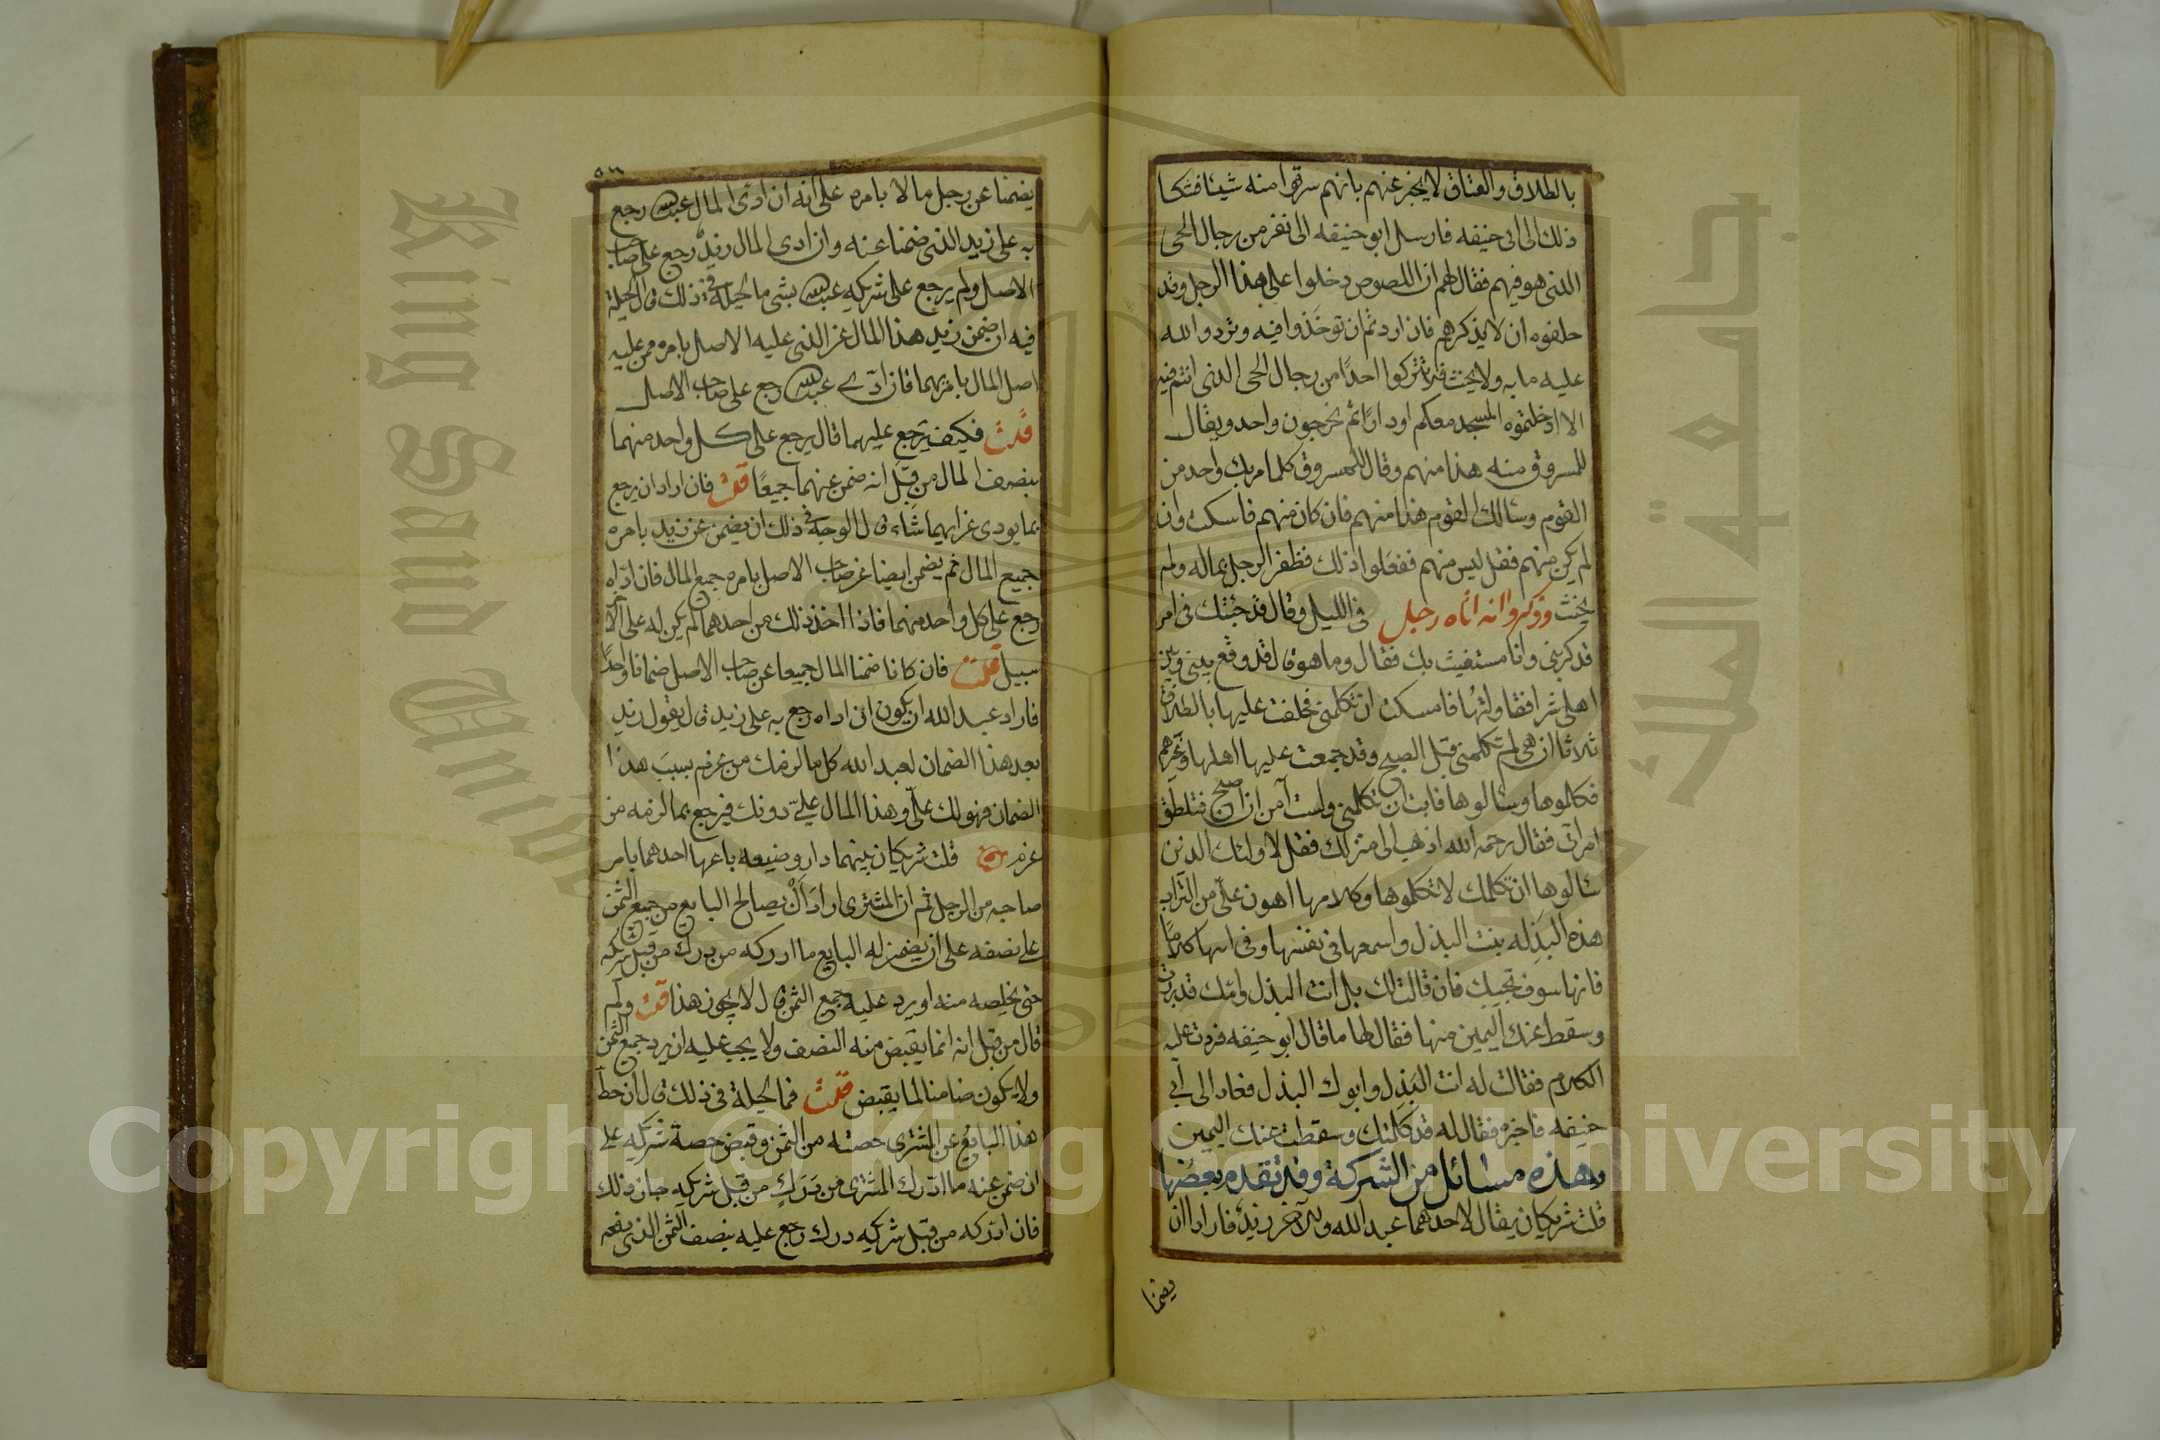 بالطلاق والعتاق لا يخبر عنهم بانهم سرقوا منه شيئا فشكا
ذلك الى ابى حنيفه فارسل ابو حنيفه الى نفر من رجال الحى
الذى هو فيهم فقال لهم ان اللصوص دخلوا على هذا الرجل وقد
حلفوه ان لا يذكرهم فان اردتم ان توخذوا فيه وتردوا الله
عليه ماله ولا يحنث فلا تتركوا احدًا من رجال الحى الذى انتم فيه
الا ادخلتموه المسجد معكم او دارًا ثم تخرجون واحد ويقال
للمسروق منه هذا منهم وقال للمسروق كلما مر بك واحد من
القوم وسالك القوم هذا منهم فان كان منهم فاسكت وان
لم يكن منهم فقل ليس منهم ففعلوا ذلك فظفر الرجل بماله ولم
يحنث وذكروا انه اتاه رجل فى الليل وقال قد جئتك فى امر
قد كربنى وانا مستغيث بك فقال وما هو قال قد وقع بينى وبين
اهلى شر افقاولتها فامسكت ان تكلمنى فحلفت عليها بالطلاق
ثلاثا ان هى لم تكلمنى قبل الصبح وقد جمعت عليها اهلها وغيرهم
فكلموها وسالوها فابت ان تكلمنى ولست آمن ان اصبح فتطلق
امراتى فقال رحمه الله اذهب الى منزلك فقل لاولئك الذين
سالوها ان تكلمك لا تكلموها وكلامها اهون علىّ من التراب
هذه البذله بنت البذل واسمعها فى نفسها وفى ابيها كلامًا
فانها سوف تجيبك فان قالت لك بل انت البذل وابنك قد برئت
وسقط عنك اليمين منها فقال لها ما قال ابو حنيفه فردت عليه
الكلام فقالت له انت البذل وابوك البذل فعاد الى ابى
حنيفه فاخبره فقال له قد كلمتك وسقطت عنك اليمين
وهذه مسائل من الشركة وقد تقدم بعضها
قلت شريكان يقال لاحدهما عبد الله وللآخر زيد فارادا ان
يضمنا
يضمنا عن رجل مالا بامره على انه ان ادى المال عبد الله رجع
به على زيد الذى ضمنا عنه وان ادى المال زيد رجع على صاحب
الاصل ولم يرجع على شريكه عبد الله بشى ما الحيلة فى ذلك قال الحيلة
فيه ان يضمن زيد هذا المال عن الذى عليه الاصل بامره ومن عليه
اصل المال بامرهما فان ادّى عبد الله رجع على صاحب الاصل
قلت فكيف يرجع عليهما قال يرجع على كل واحد منهما
بنصف المال من قِبل انه ضمن عنهما جميعًا قلت فان اراد ان يرجع
بما يودى عن ايهما شاء قال الوجه فى ذلك ان يضمن عن زيد بامره
جميع المال ثم يضمن ايضا عن صاحب الاصل بامره جميع المال فان ادّاه
رجع على كل واحد منهما فاذا اخذ ذلك من احدهما لم يكن له على الآخر
سبيل قلت فان كانا ضمنا المال جميعا عن صاحب الاصل ضمانا واحدًا
فاراد عبد الله ان يكون ان اداه رجع به على زيد قال يقول زيد
بعد هذا الضمان لعبد الله كل ما لزمك من غرم بسبب هذا
الضمان فهو لك علىّ وهذا المال علىّ دونك فيرجع بما لزمه من
غرم قلت شريكان بينهما دار وضيعه باعها احدهما بامر
صاحبه من الرجل ثم ان المشترى اراد ان يصالح البايع من جميع الثمن
على نصفه على ان يضمن له البايع ما ادركه من درك من قبل شريكه
حتى يخلصه منه او يرد عليه جميع الثمن قال لا يجوز هذا قلت ولم
قال من قبل انه انما يقبض منه النصف ولا يجب عليه ان يرد جميع الثمن
ولا يكون ضامنا لما يقبض قلت فما الحيلة فى ذلك قال ان حط
هذا البايع عن المشترى حصته من الثمن وقبض حصة شريكه على
ان ضمن عنه ما ادرك المشترى من دَرَك من قبل شريكه جاز ذلك
فان ادركه من قبل شريكه درك رجع عليه بنصف الثمن الذى
جامعة الملك
King Saud
Copyright © King Saud University